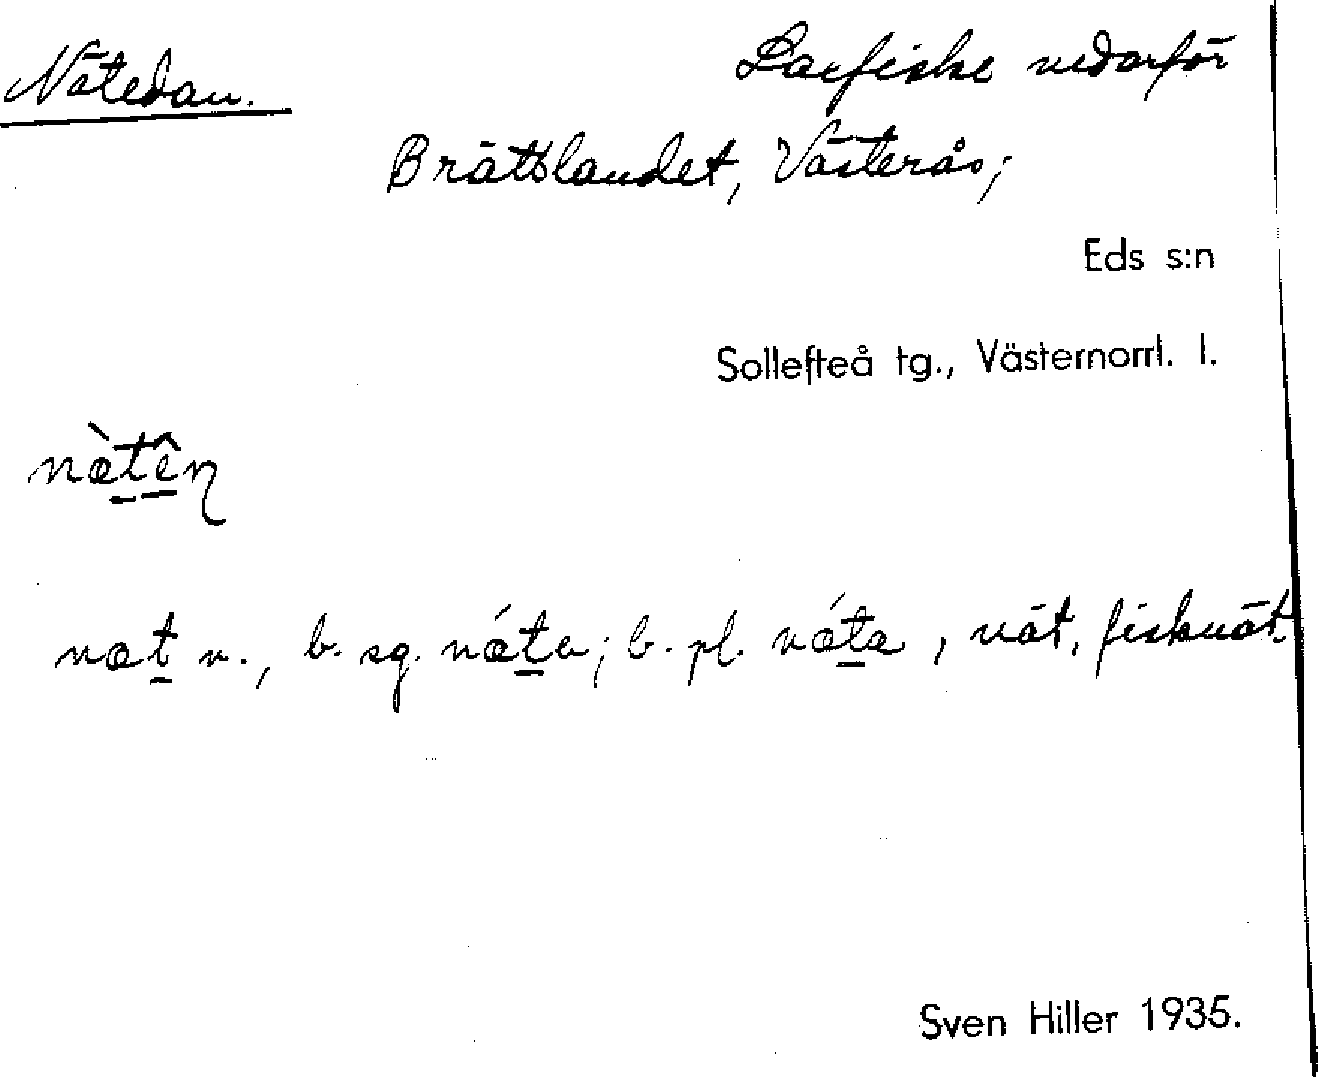 Nätedan. Laxfiske nedanför
Brättslandet, Västerås;
Eds s:n
Sollefteå tg., Västernorrl. l.
næ̀tên
næt n., b. sg. nǽta; b. pl. nǽta, nät, fisknät.
Sven Hiller 1935.